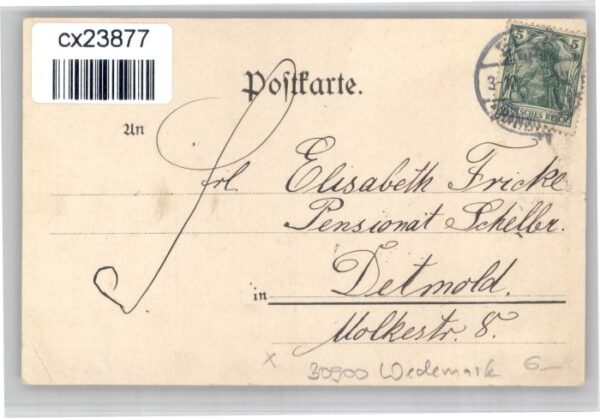 cx23877
Postkarte.
5 5
DEUTSCHES REICH
An
Frl. Elisabeth Fricke
Pensionat Scheller.
in Detmold.
Molkestr. 8.
x 30900 Wedemark 6-